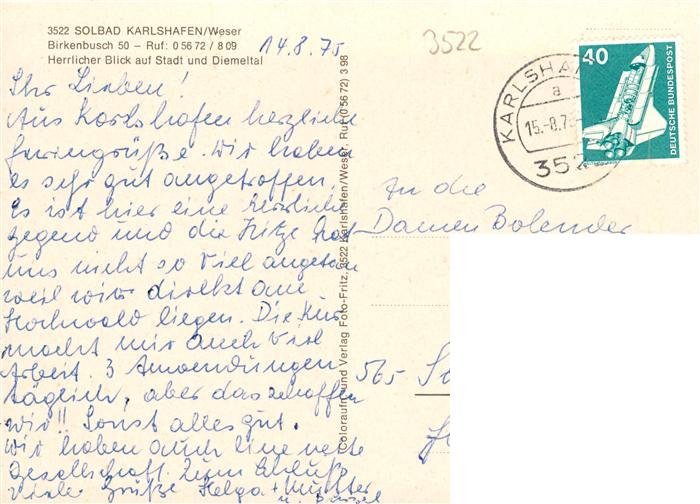 3522 SOLBAD KARLSHAFEN/Weser
Birkenbusch 50 - Ruf: 0 56 72 / 8 09
Herrlicher Blick auf Stadt und Diemeltal
14.8.75
3522
Ihr Lieben!
Aus Karlshafen herzliche
Feriengrüße. Wir haben
es sehr gut angetroffen.
Es ist hier eine herrliche
Gegend und die Hitze hat
uns nicht so viel angetan
weil wir direkt am
Hochwald liegen. Die Kur
macht mir auch viel
Arbeit. 3 Anwendungen
täglich, aber das schaffen
wir!! Sonst alles gut.
Wir haben auch eine nette
Gesellschaft. Zum Schluß
viele Grüße Helga + Mutter
u.
Coloraufn. und Verlag Foto-Fritz, 3522 Karlshafen/Weser, Ruf (0 56 72) 3 98
KARLSHA
a
15.-8.75
352
40
DEUTSCHE BUNDESPOST
An die
Damen Bolender
565